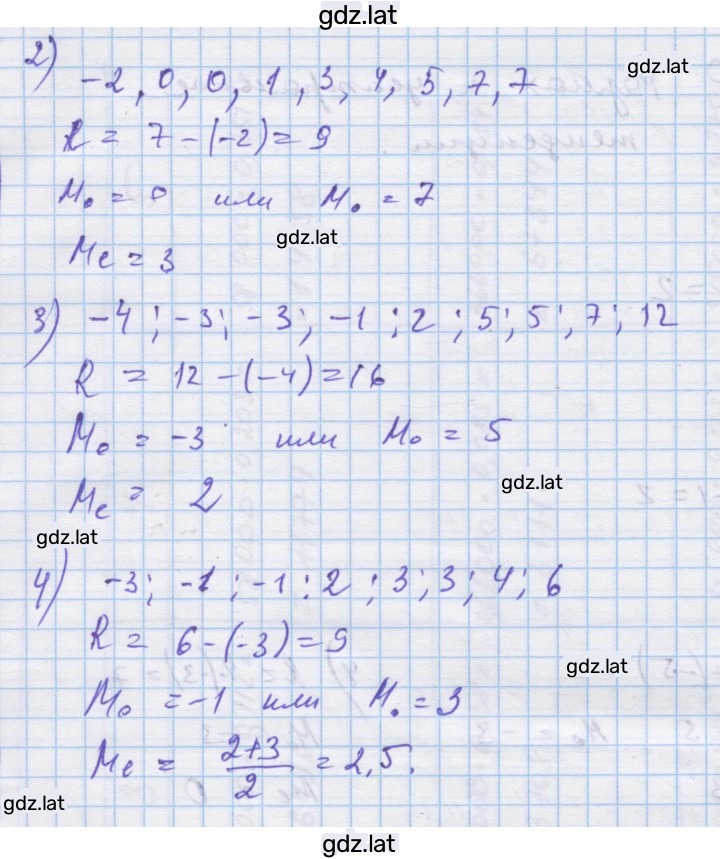 gdz.lat
gdz.lat
2) -2, 0, 0, 1, 3, 4, 5, 7, 7
R = 7 - (-2) = 9
Mo = 0 или Mo = 7
gdz.lat
Me = 3
3) -4; -3; -3; -1; 2; 5; 5; 7; 12
R = 12 - (-4) = 16
Mo = -3 или Mo = 5
gdz.lat
Me = 2
gdz.lat
4) -3; -1; -1; 2; 3; 3; 4; 6
R = 6 - (-3) = 9
gdz.lat
Mo = -1 или Mo = 3
Me = (2+3)/2 = 2,5.
gdz.lat
gdz.lat